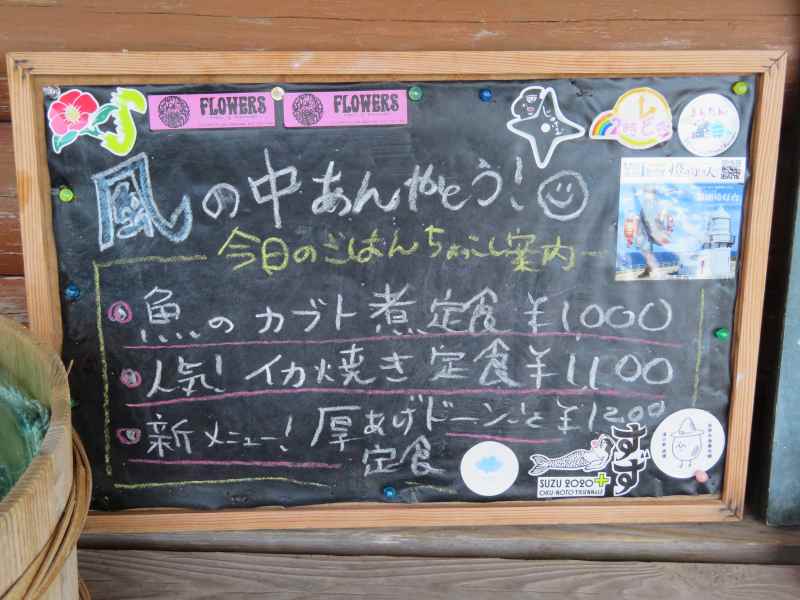 FLOWERS FLOWERS
2時だ
風の中あんやとう!
今日のごはんちょこし案内
① 魚のカブト煮定食 ¥1,000
② 人気! イカ焼き定食 ¥1,100
③ 新メニュー! 厚あげドーンごと ¥1200
定食
すず
SUZU 2020+
OKU-NOTO TRIENNALE